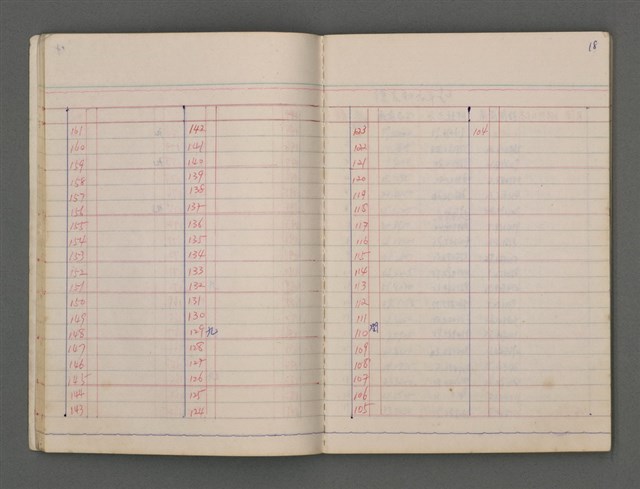 18
161
160
159
158
157
156
155
154
153
152
151
150
149
148
147
146
145
144
143
142
141
140
139
138
137
136
135
134
133
132
131
130
129 九
128
127
126
125
124
123
122
121
120
119
118
117
116
115
114
113
112
111
110
109
108
107
106
105
104